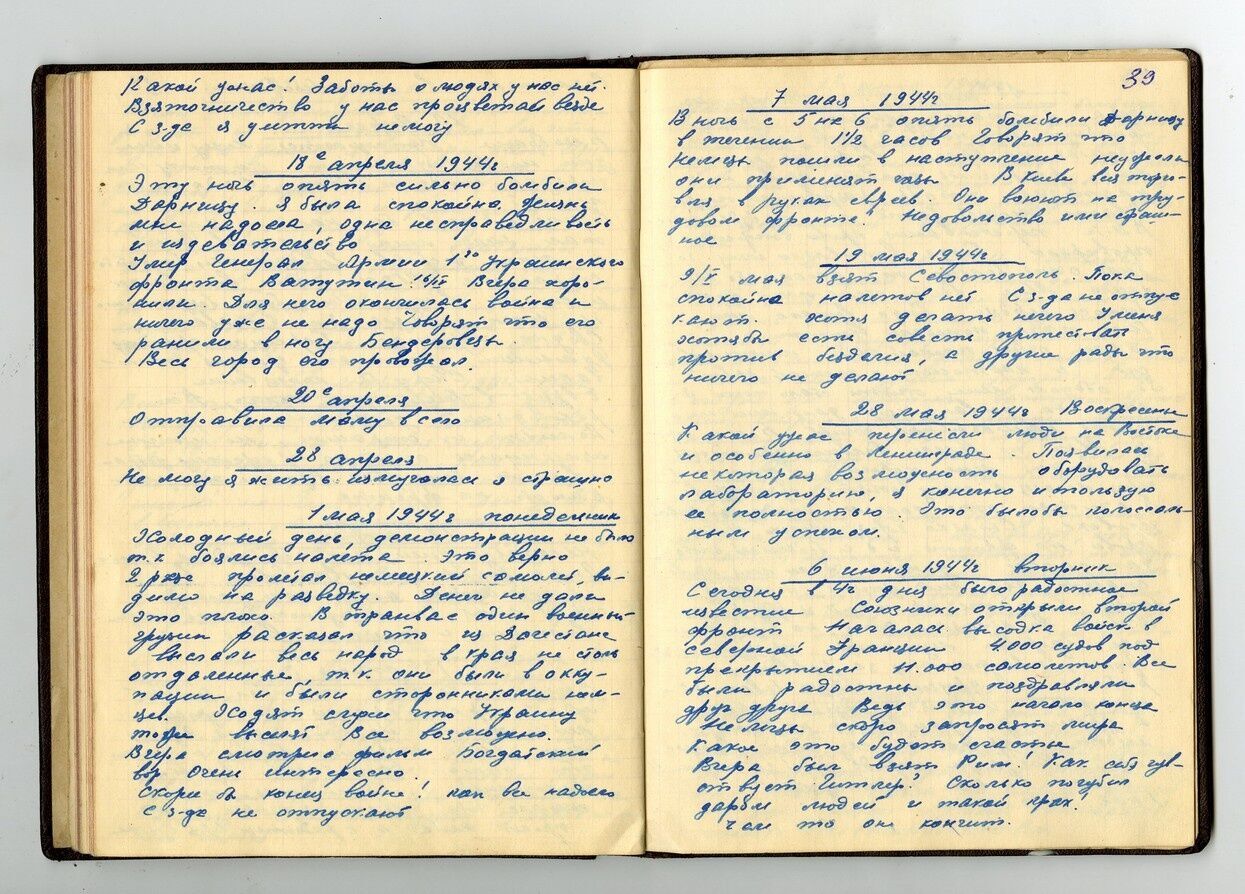 Какой ужас! Заботы о людях у нас нет.
Взяточничество у нас процветает везде
С з-да я уйти не могу
18е апреля 1944г
Эту ночь опять сильно бомбили
Дарницу. Я была спокойна, жизнь
мне надоела, одна несправедливость
и издевательство
Умер Генерал Армии 1го Украинского
фронта Ватутин. 16/IV Вчера хоро-
нили. Для него окончилась война и
ничего уже не надо Говорят что его
ранили в ногу Бендеровцы.
Весь город его провожал.
20е апреля
Отправила маму в село
28 апреля
Не могу я жить измучалась я страшно
1 мая 1944г понедельник
Холодный день, демонстрации не было
т.к боялись налета. Это верно
2 раза пролетал немецкий самолет, ви-
димо на разведку. Денег не дали
это плохо. В трамвае один военный-
грузин рассказал что из Дагестана
выслали весь народ в края не столь
отдаленные, т.к. они были в окку-
пации и были сторонниками нем-
цев. Ходят слухи что Украину
тоже вышлют Все возможно.
Вчера смотрела фильм Богдатский
вор Очень интересно.
Скорей бы конец войне! как все надоело
С з-да не отпускают
39
7 мая 1944г
В ночь с 5 на 6 опять бомбили Дарницу
в течении 1 1/2 часов Говорят что
немцы пошли в наступление неужели
они применят газы В Киеве вся торго-
вля в руках евреев. Они воюют на тру-
довом фронте" Недовольство ими страш-
ное
19 мая 1944г
9/V мая взят Севостополь. Пока
спокойно налетов нет С з-да не отпус
кают. хотя делать нечего У меня
хотябы есть совесть протестовать
против безделия, а другие рады что
ничего не делают
28 мая 1944г Воскресенье
Какой ужас перенесли люди на Востоке
и особенно в Ленинграде. Появилась
некоторая возможность оборудовать
лабораторию, я конечно использую
ее полностью. Это былобы колоссаль-
ным успехом.
6 июня 1944г вторник
Сегодня в 4ч дня было радостное
известие Союзники открыли второй
фронт Началась высодка войск в
северной Франции 4000 судов под
прекрытием 11.000 самолетов. Все
были радостны и поздравляли
друг друга Ведь это начало конца
Немцы скоро запросят мира
Какое это будет счастье
Вчера был взят Рим! Как себя чув-
ствует Гитлер? Сколько погубил
даром людей и такой крах!
Чем то он кончит.